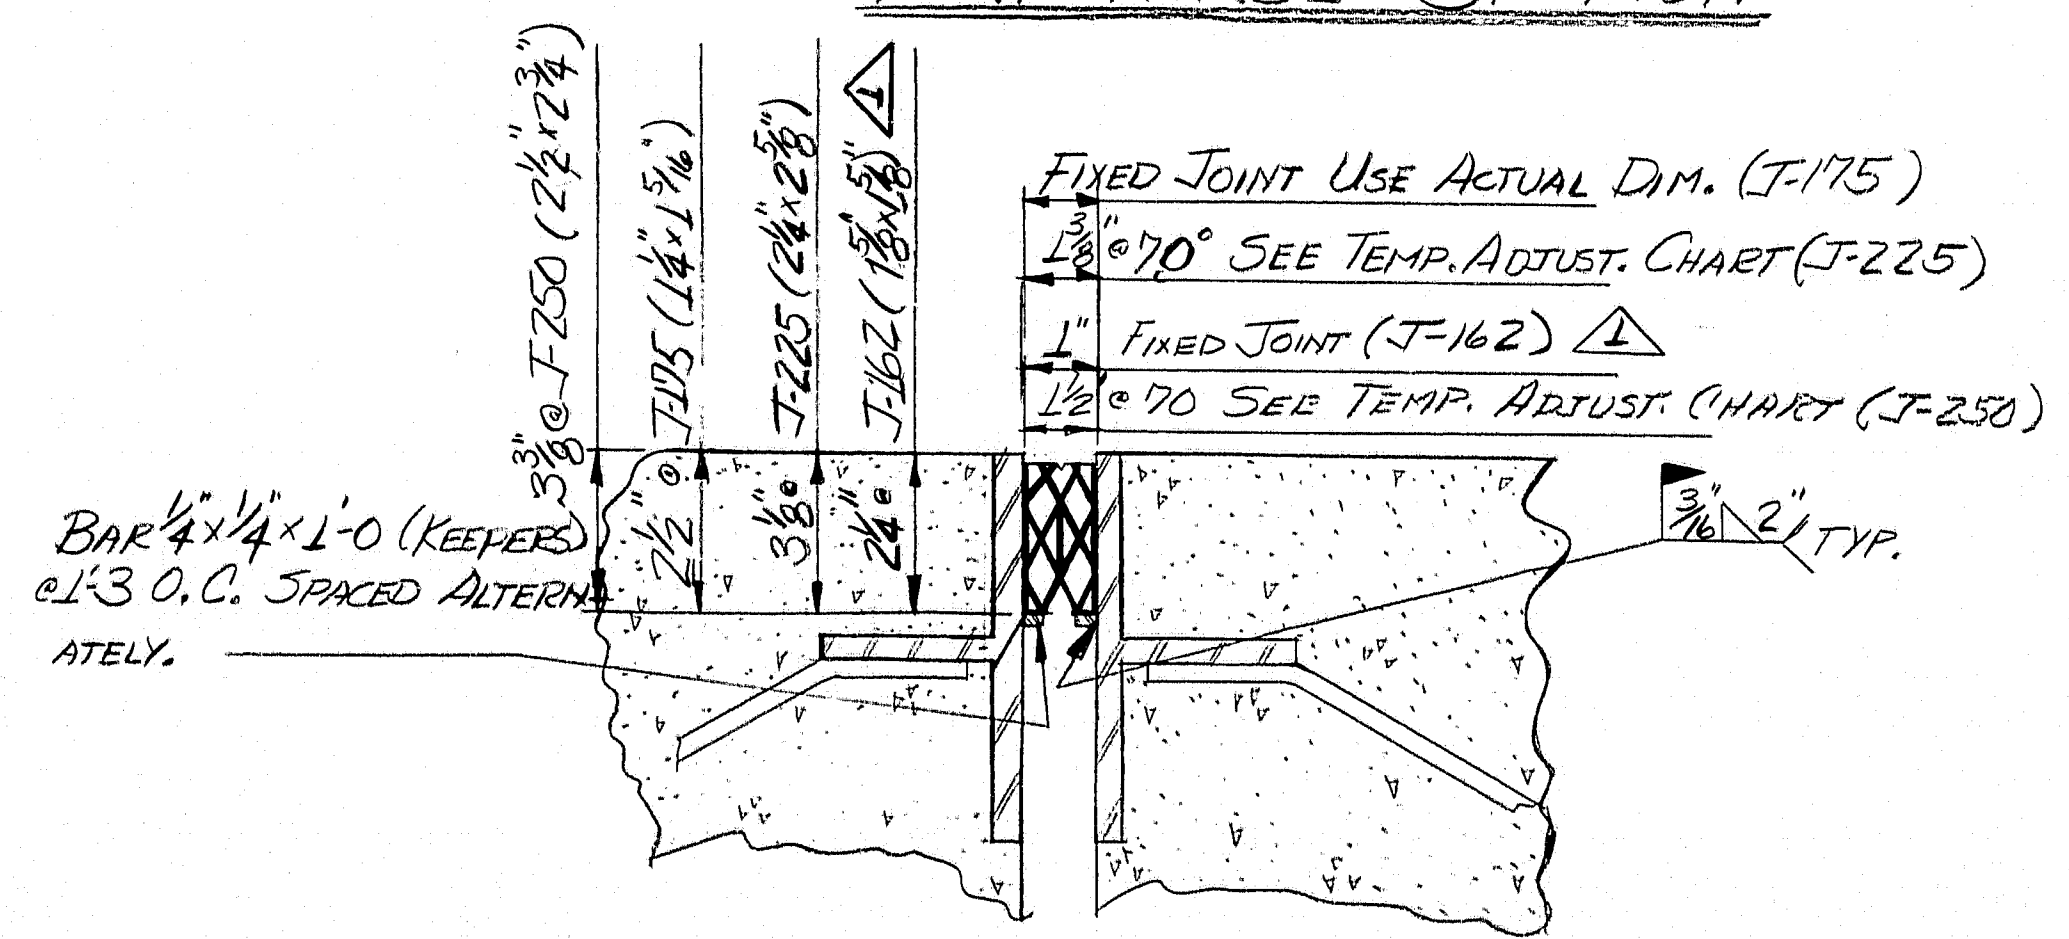 3 3/8" @ J-250 (2 1/2" x 2 3/4")
2 1/2" @ J-175 (1 1/4" x 1 5/16")
3 1/8" @ J-225 (2 1/4" x 2 5/8")
2 1/4" @ J-162 (1 5/8" x 1 5/8") 1
FIXED JOINT USE ACTUAL DIM. (J-175)
1 3/8" @ 70° SEE TEMP. ADJUST. CHART (J-225)
1" FIXED JOINT (J-162) 1
1 1/2" @ 70 SEE TEMP. ADJUST. CHART (J-250)
BAR 1/4" x 1/4" x 1'-0 (KEEPERS)
@ 1'-3 O.C. SPACED ALTERN-
ATELY.
3/16" 2" TYP.